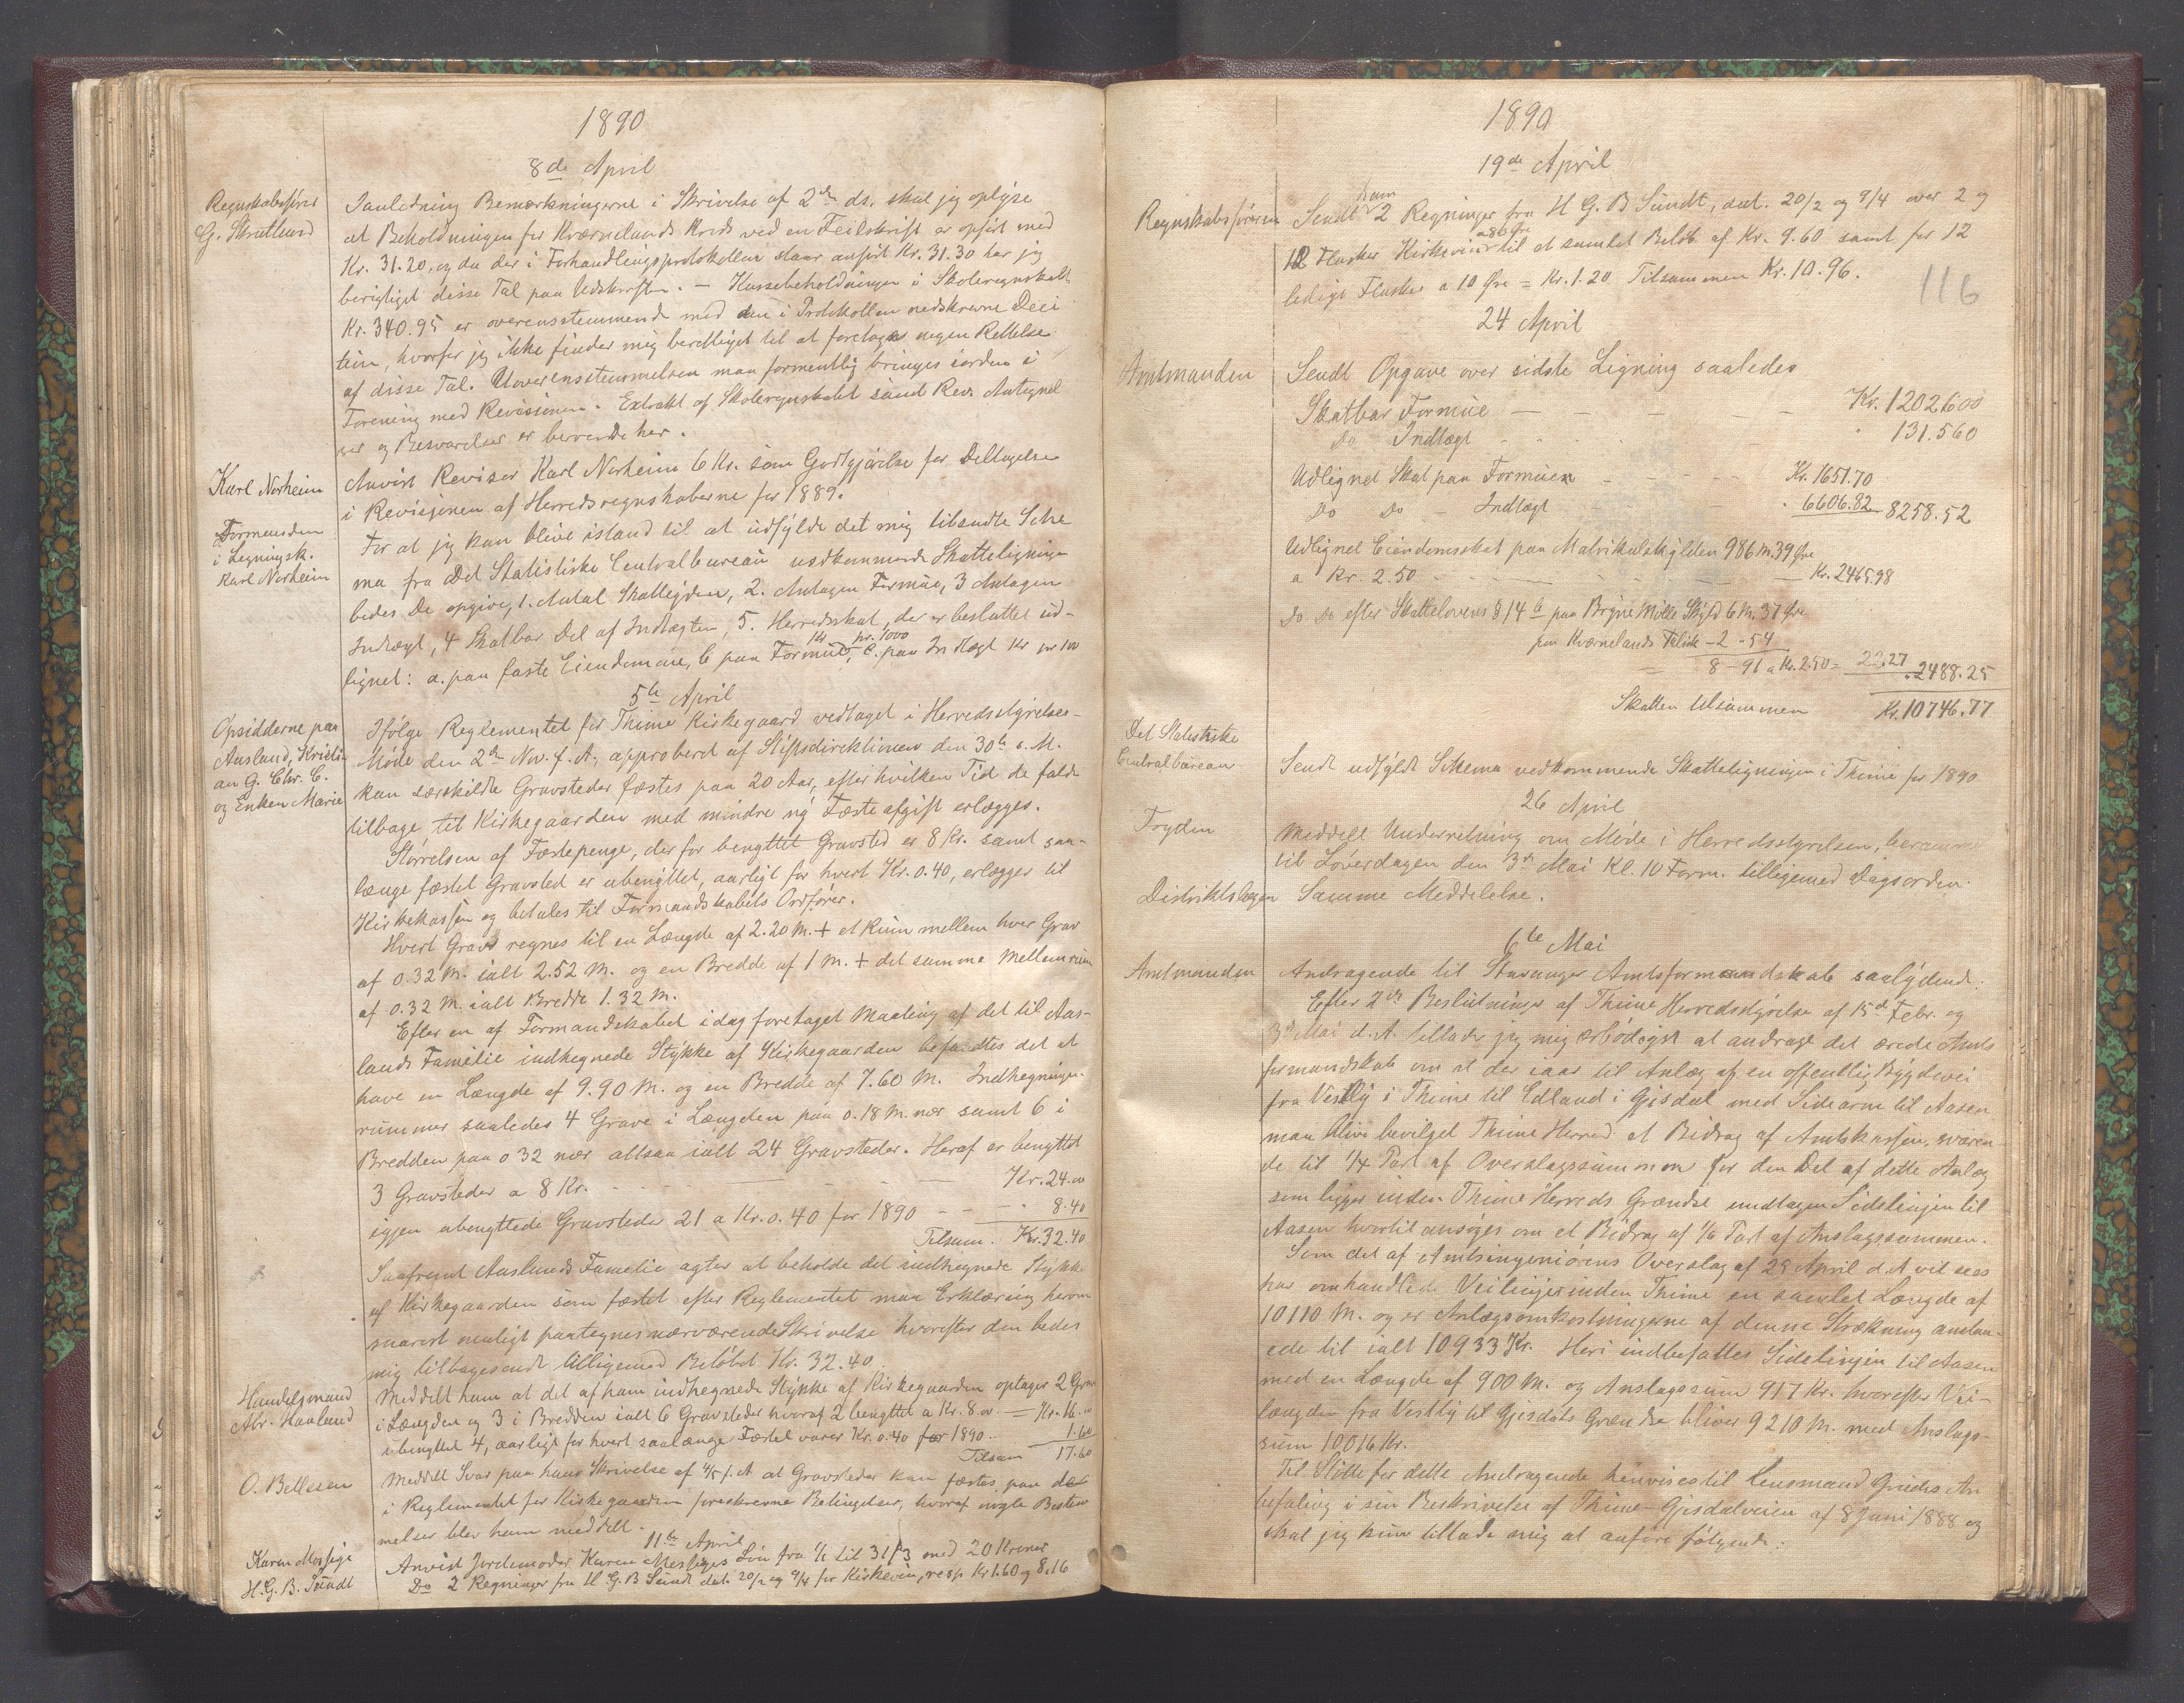 1890
8de April
Regnskabsfører
G. Skrutlund
Ianledning Bemærkningerne i Skrivelse af 2de ds. skal jeg oplyse
at Beholdningen for Kværnelands Kreds ved en Feilskrift er opført med
Kr. 31.20, og da der i Forhandlingsprotokollen staar anført Kr. 31.30 har jeg
berigtiget disse Tal paa Udskriften. – Kassebeholdningen i Skoleregnskabet
Kr. 340.95 er overensstemmende med den i Protokollen nedskrevne Deci
tion, hvorfor jeg ikke finder mig berettiget til at foretages nogen Rettelse
af disse Tal. Uoverensstemmelsen maa formentlig bringes iorden i
Forening med Revisionen. Extrakt af Skoleregnskabet samt Rev. Antegnel
ser og Besvarelser er beroende her.
Karl Norheim
Anvist Revisor Karl Norheim 6 Kr. som Godtgjørelse for Deltagelse
i Revisjonen af Herredsregnskaberne for 1889.
Formanden
i Legningsk.
Karl Norheim
For at jeg kan blive istand til at udfylde det mig tilsendte Sche
ma fra Det Statistiske Centralbureau vedkommende Skatteligningen
bedes De opgive, 1. Antal Skatteydere, 2. Antagen Formue, 3 Antagen
Indtægt, 4 Skatbar Del af Indtægten, 5. Herredsskat, der er besluttet ud-
lignet: a. paa faste Eiendomme, b paa Formue, Kr. pr. 1000 c. paa Indtægt Kr pr 100
5te April
Opsidderne paa
Aasland, Kristi-
an G. Chr. C.
og Enken Marie
Ifølge Reglementet for Thime Kirkegaard vedtaget i Herredsstyrelses-
Møde den 2de Nov. f. A., approberet af Stiftsdirektionen den 30te s. M.
kan særskilde Gravsteder fæstes paa 20 Aar, efter hvilken Tid de falde
tilbage til Kirkegaarden med mindre ny Fæsteafgift erlægges.
Størrelsen af Fæstepenge, der for benyttet Gravsted er 8 Kr. samt saa-
længe fæstet Gravsted er ubenyttet, aarligt for hvert Kr. 0.40, erlægges til
Kirkekassen og betales til Formandskabets Ordfører.
Hvert Grav regnes til en Længde af 2.20 M. + et Rum mellem hver Grav
af 0.32 M. ialt 2.52 M. og en Bredde af 1 M. + det samme Mellemrum
af 0.32 M. ialt Bredde 1.32 M.
Efter en af Formandskabet idag foretaget Maaling af det til Aas-
lands Familie indhegnede Stykke af Kirkegaarden befandtes det at
have en Længde af 9.90 M. og en Bredde af 7.60 M. Indhegningen
rummer saaledes 4 Grave i Længden paa 0.18 M. nær samt 6 i
Bredden paa 0 32 nær altsaa ialt 24 Gravsteder. Heraf er benyttet
3 Gravsteder a 8 Kr. - - - Kr. 24.00
igjen ubenyttede Gravsteder 21 a Kr. 0.40 for 1890 - - - 8.40
Tilsam. Kr. 32.40
Saafremt Aaslands Familie agter at beholde det indhegnede Stykke
af Kirkegaarden som fæstet efter Reglementet maa Erklæring herom
snarest muligt paategnes nærværende Skrivelse hvorefter den bedes
mig tilbagesendt tilligemed Beløbet Kr. 32.40.
Handelsmand
Abr. Haaland
Meddelt ham at det af ham indhegnede Stykke af Kirkegaarden optager 2 Grave
i Længden og 3 i Bredden ialt 6 Gravsteder hvoraf 2 benyttet a Kr. 8.00 = Kr. 16.00
ubenyttet 4, aarligt for hvert saalænge Fæstet varer Kr. 0.40 for 1890. - 1.60
Tilsam 17.60
O. Bellesen
Meddelt Svar paa hans Skrivelse af 4/5 f. A at Gravsteder kan fæstes paa de
i Reglementet for Kirkegaarden foreskrevne Betingelser, hvoraf nogle Bestem
melser blev ham meddelt.
11te April
Karen Mossige
Anvist Jordemoder Karen Mossiges Løn fra 1/1 til 31/3 med 20 Kroner
H. G. B. Sundt
Do 2 Regninger fra H G. B Sundt dat. 20/2 og 9/4 for Kirkevin, resp. Kr 1.60 og 8.16
1890
19de April
116
Regnskabsføreren
Sendt ham 2 Regninger fra H G. B Sundt, dat. 20/2 og 9/4 over 2 og
12 Flasker Kirkevin a 80 Øre til et samlet Beløb af Kr. 9.60 samt for 12
ledige Flasker a 10 Øre = Kr. 1.20 Tilsammen Kr. 10.96.
24 April
Amtmanden
Sendt Opgave over sidste Ligning saaledes
Skatbar Formue - - - - Kr. 1202600
Do Indtægt - - - " 131.560
Udlignet Skat paa Formuen - - - Kr. 1651.70
Do Do - Indtægt - - " 6606.82 8258.52
Udlignet Eiendomsskat paa Matrikulskylden 986 M. 39 Øre
a Kr. 2.50 - - - - Kr. 2465.98
Do Do efter Skattelovens § 14 b paa Bryne Mølle Skyld 6 M. 37 Øre
paa Kværnelands Fabrik - 2 - 54
8 - 91 a Kr. 2.50 = 22.27 . 2488.25
Skatten tilsammen Kr. 10746.77
Det Statistiske
Centralbureau
Sendt udfyldt Schema vedkommende Skatteligningen i Thime for 1890
26 April
Fogden
Meddelt Underretning om Møde i Herredsstyrelsen, berammet
til Løverdagen den 3de Mai Kl. 10 Form. tilligemed Dagsorden.
Distriktslægen
Samme Meddelelse.
6te Mai
Amtmanden
Andragende til Stavanger Amtsformandskab saalydende:
Efter 2de Beslutninger af Thime Herredsstyrelse af 15de Febr. og
3de Mai d. A. tillader jeg mig ærbødigst at andrage det ærede Amts
formandskab om at der iaar til Anlæg af en offentlig Bygdevei
fra Vestly i Thime til Edland i Gjisdal med Sidearm til Aasen
maa blive bevilget Thime Herred et Bidrag af Amtskassen, svaren
de til 1/4 Part af Overslagssummen for den Del af dette Anlæg
som ligger inden Thime Herreds Grændse undtagen Sidelinjen til
Aasen hvortil ansøges om et Bidrag af 1/6 Part af Anslagssummen.
Som det af Amtsingeniørens Overslag af 29 April d. A vil sees
har omhandlede Veilinjer inden Thime en samlet Længde af
10110 M. og er Anlægsomkostningerne af denne Strækning anslaa-
ede til ialt 10933 Kr. Heri indbefattes Sidelinjen til Aasen
med en Længde af 900 M. og Anslagssum 917 Kr. hvorefter Vei-
længden fra Vestly til Gjisdals Grændse bliver 9210 M. med Anslags-
sum 10016 Kr.
Til Støtte for dette Andragende henvises til Lensmand Grudes An
befaling i sin Beskrivelse af Thime-Gjisdalveien af 8 Juni 1888 og
skal jeg kun tillade mig at anføre følgende: